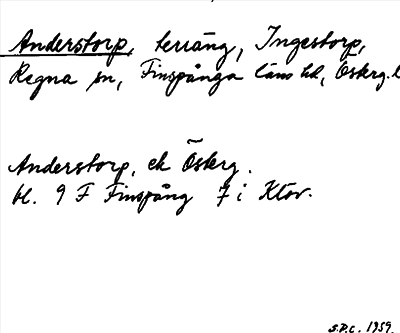 Anderstorp, terräng, Ingestorp,
Regna sn, Finspånga läns hd, Österg. l
Anderstorp, ek Österg.
bl. 9 F Finspång 7 i Ktov.
S.P.C. 1959.